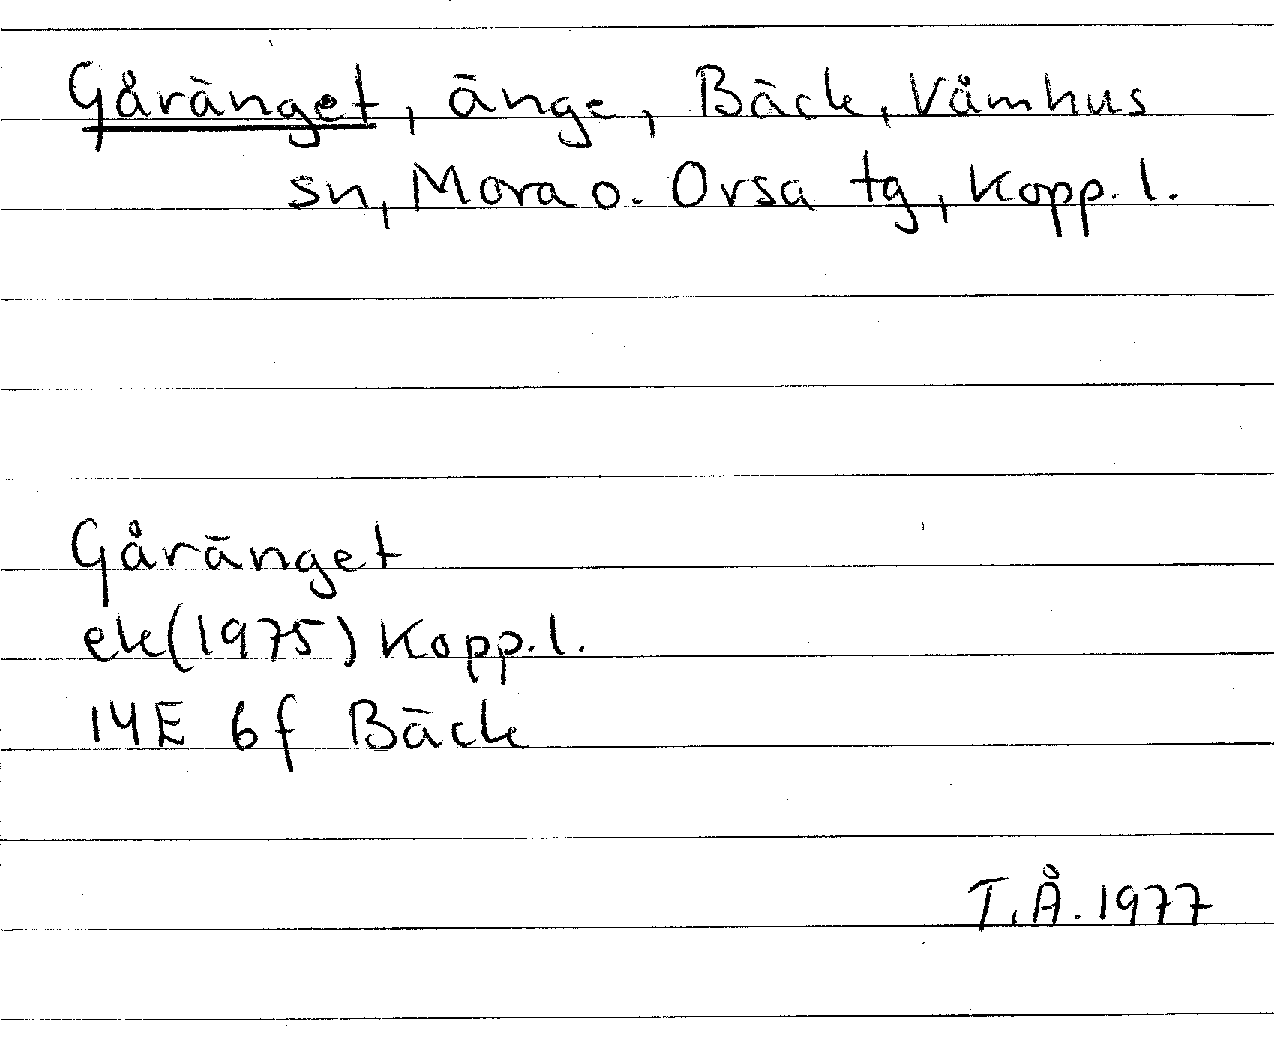 Gåränget, änge, Bäck, Våmhus
sn, Mora o. Orsa tg, Kopp. l.
Gåränget
ek(1975) Kopp. l.
14E 6f Bäck
T.Å. 1977